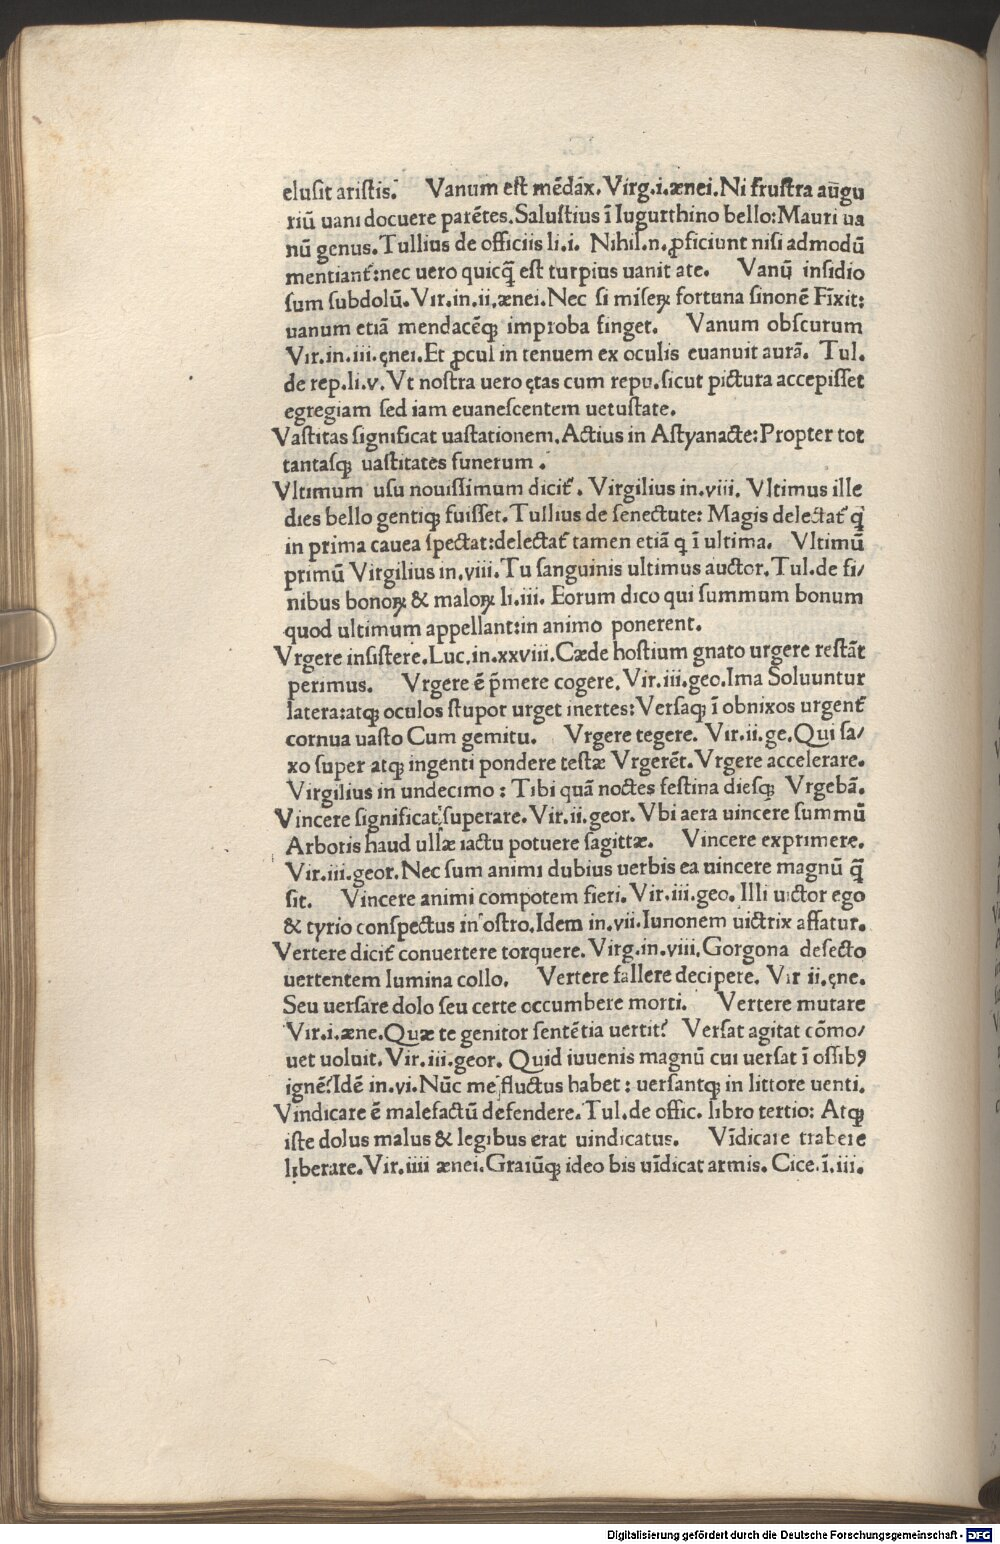 eluſit ariſtis. Vanum eſt mēdax. Virg.i.ænei. Ni fruſtra augu
riū uani docuere parētes. Saluſtius ī Iugurthino bello: Mauri ua
nū genus. Tullius de officiis li.i. Nihil.n.ꝓficiunt niſi admodū
mentiant᷑: nec uero quicq̄ eſt turpius uanit ate. Vanū inſidio
ſum ſubdolū. Vir.in.ii.ænei. Nec ſi miſeꝝ fortuna ſinonē Fīxit:
uanum etiā mendacēqꝫ improba finget. Vanum obſcurum
Vir.in.iii.ęnei. Et ꝓcul in tenuem ex oculis euanuit aurā. Tul.
de rep.li.v. Vt noſtra uero ętas cum repu.ſicut pictura accepiſſet
egregiam ſed iam euaneſcentem uetuſtate.
Vaſtitas ſignificat uaſtationem. Actius in Aſtyanacte: Propter tot
tantaſqꝫ uaſtitates funerum.
Vltimum uſu nouiſſimum dicit᷑. Virgilius in.viii. Vltimus ille
dies bello gentiqꝫ fuiſſet. Tullius de ſenectute: Magis delectat᷑ q̄
in prima cauea ſpectat: delectat᷑ tamen etiā q ī ultima. Vltimū
primū Virgilius in.viii. Tu ſanguinis ultimus auctor. Tul.de fi/
nibus bonoꝝ & maloꝝ li.iii. Eorum dico qui ſummum bonum
quod ultimum appellant: in animo ponerent.
Vrgere inſiſtere. Luc.in.xxviii. Cæde hoſtium gnato urgere reſtāt
perimus. Vrgere ē p̄mere cogere. Vir.iii.geo. Ima Soluuntur
latera: atqꝫ oculos ſtupor urget inertes: Verſaqꝫ ī obnixos urgent᷑
cornua uaſto Cum gemitu. Vrgere tegere. Vir.ii.ge. Qui ſa/
xo ſuper atqꝫ ingenti pondere teſtæ Vrgerēt. Vrgere accelerare.
Virgilius in undecimo: Tibi quā noctes feſtina dieſqꝫ Vrgebā.
Vincere ſignificat ſuperare. Vir.ii.geor. Vbi aera uincere ſummū
Arboris haud ullæ iactu potuere ſagittæ. Vincere exprimere.
Vir.iii.geor. Nec ſum animi dubius uerbis ea uincere magnū q̄
ſit. Vincere animi compotem fieri. Vir.iii.geo. Illi uictor ego
& tyrio conſpectus in oſtro. Idem in.vii. Iunonem uictrix affatur.
Vertere dicit᷑ conuertere torquere. Virg.in.viii. Gorgona deſecto
uertentem lumina collo. Vertere fallere decipere. Vir ii.ęne.
Seu uerſare dolo ſeu certe occumbere morti. Vertere mutare
Vir.i.æne. Quæ te genitor ſentētia uertit? Verſat agitat cōmo/
uet uoluit. Vir.iii.geor. Quid iuuenis magnū cui uerſat ī oſſibꝰ
ignē? Idē in.vi. Nūc me fluctus habet: uerſantqꝫ in littore uenti.
Vindicare ē malefactū defendere. Tul.de offic. libro tertio: Atqꝫ
iſte dolus malus & legibus erat uindicatus. Vīdicare trahere
liberare. Vir.iiii ænei. Graiūqꝫ ideo bis uīdicat armis. Cice.ī.iii.
Digitalisierung gefördert durch die Deutsche Forschungsgemeinschaft - DFG